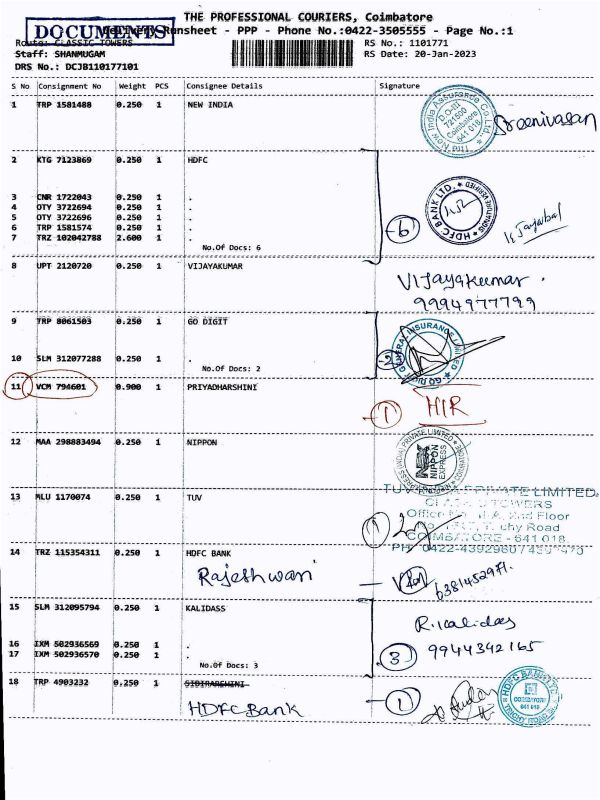 THE PROFESSIONAL COURIERS, Coimbatore
DOCUMENTS
Delivery Runsheet - PPP - Phone No.:0422-3505555 - Page No.:1
Route: CLASSIC TOWERS RS No.: 1101771
Staff: SHANMUGAM RS Date: 20-Jan-2023
DRS No.: DCJB110177101
S No Consignment No Weight PCS Consignee Details Signature
1 TRP 1581488 0.250 1 NEW INDIA
New India Assurance Co.Ltd. D.O-III 721500 Coimbatore 641 018
Sreenivasan
2 KTG 7123869 0.250 1 HDFC
3 CNR 1722043 0.250 1 .
4 OTY 3722694 0.250 1 .
5 OTY 3722696 0.250 1 .
6 TRP 1581574 0.250 1 .
7 TRZ 102042788 2.600 1 .
No.Of Docs: 6
-6
HDFC BANK LTD.
8 UPT 2120720 0.250 1 VIJAYAKUMAR
Vijayakumar.
9994977799
9 TRP 8061503 0.250 1 GO DIGIT
10 SLM 312077288 0.250 1 .
No.Of Docs: 2
-2
GO DIGIT GENERAL INSURANCE LIMITED
11 VCM 794601 0.900 1 PRIYADHARSHINI
-1 HIR
12 MAA 298883494 0.250 1 NIPPON
NIPPON EXPRESS
13 MLU 1170074 0.250 1 TUV
PRIVATE LIMITED.
TOWERS
2nd Floor
Road
COIMBATORE - 641 018.
1
14 TRZ 115354311 0.250 1 HDFC BANK
Rajeshwari
15 SLM 312095794 0.250 1 KALIDASS
R.Kalidas
9944342165
16 IXM 502936569 0.250 1 .
17 IXM 502936570 0.250 1 .
No.Of Docs: 3
3
18 TRP 4903232 0.250 1
HDFC Bank
-1
HDFC BANK LTD. COIMBATORE 641 018 TRICHY ROAD